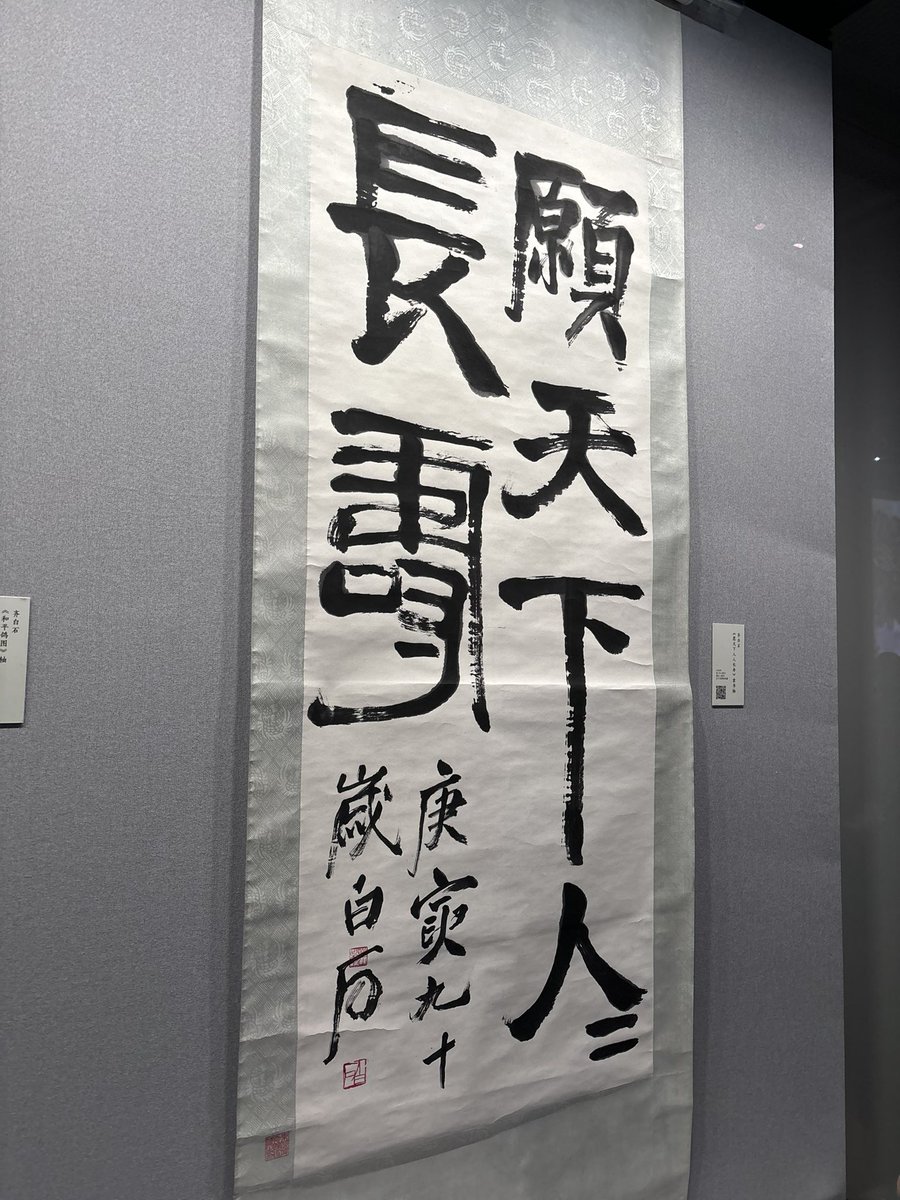 願天下人二
長壽
庚寅九十
歲白石
齐白石
《和平鸽图》轴